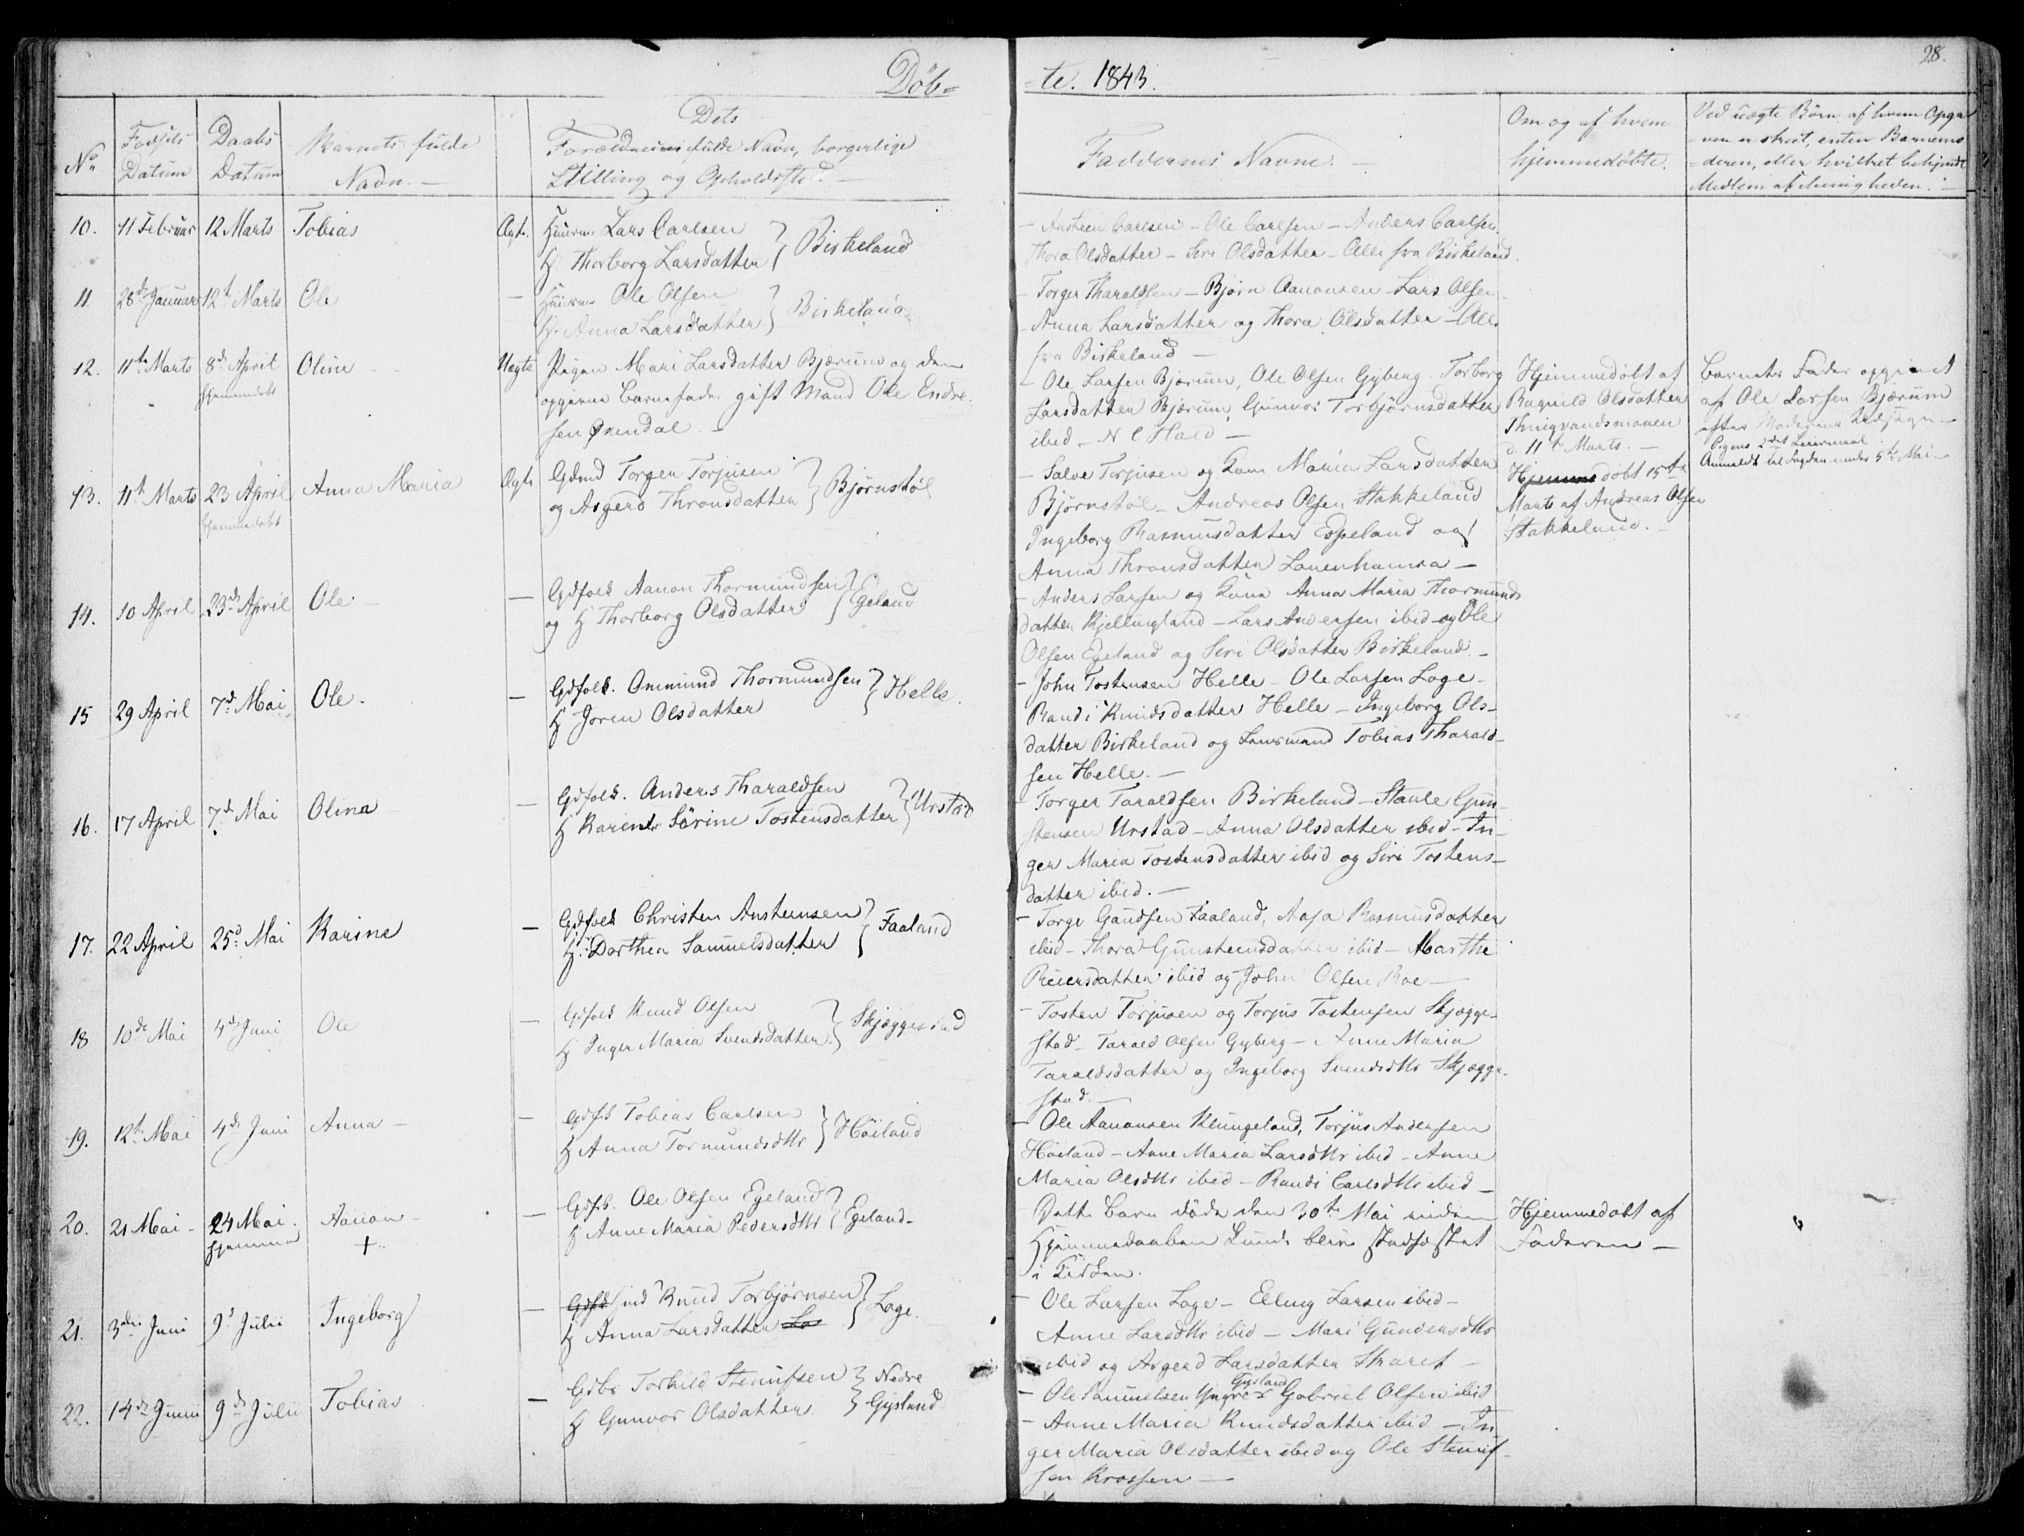 Döb-
-te. 1843.
28.
No
Fødsels Datum
Daabs Datum
Barnets fulde Navn. -
Dets
Forældrenes fulde Navn, borgerlige
Stilling og Opholdsted. -
Faddernes Navne. -
Om og af hvem
hjemmedøbte.
Ved uægte Børn, af hvem Opga
-ven er skeet, enten Barnemo
-deren, eller hvilket bekjendt
Medlem af Menigheden. -
10. 11 Februar 12 Marts Tobias Ægte. Huusm Lars Carlsen
H Thorborg Larsdatter } Birkeland
- Austeen Carlsen - Ole Carlsen - Anders Carlsen
Thora Olsdatter - Siri Olsdatter - Alle fra Birkeland.
11. 28de Januar 12te Marts Ole - Huusm Ole Olsen
H. Anna Larsdatter } Birkeland
- Torger Tharaldsen - Bjørn Aanonsen - Lars Olsen -
- Anna Larsdatter og Thora Olsdatter - Alle
fra Birkeland -
12. 11te Marts 8de April Oline Uægte Pigen Mari Larsdatter Bjærum og den
hjemmedøbt
opgivne Barnefader gift Mand Ole Endre-
sen Øxendal. -
- Ole Larsen Bjørum, Ole Olsen Gyberg - Torborg
Larsdatter Bjærum, Gunvor Torbjørnsdatter
ibid - N C Hald -
Hjemmedøbt af
Ragnild Olsdatter
d. 11te Marts. -
Barnets Fader opgivet
af Ole Larsen Bjærum
efter Moderens Udsagn -
Pigens 2det Leiermaal
Anmeldt til Fogden under 5te Mai -
13. 11te Marts 23 April Anna Maria Ægte Gdmd Torger Torjusen
hjemmedøbt
og Asgerd Thronsdatter } Bjørnstøl
- Salve Torjusen og Kone Maria Larsdatter
Bjørnstøl - Andreas Olsen Stakkeland
Ingeborg Rasmusdatter Espeland og
Anna Thronsdatter -
Hjemmedøbt 15te
Marts af Andreas Olsen
Stakkeland. -
14. 10 April 23de April Ole - - Gdfolk Aanon Thormundsen
og H Thorborg Olsdatter } Egeland
- Anders Larsen og Kone Anna Maria Thormunds
datter Kjellingland - Lars Andersen ibid og Ole
Olsen Egeland og Siri Olsdatter Birkeland. -
15 29 April 7d Mai Ole. - Gdfolk. Ommund Thormundsen
H Joren Olsdatter } Helle.
- John Tostensen Helle - Ole Larsen Loge -
Randi Knudsdatter Helle - Ingeborg Ols-
datter Birkeland og Lensmand Tobias Tharald-
sen Helle. -
16. 17 April 7d Mai Olina - Gdfolk. Anders Tharaldsen
H Karen Sørine Tostensdatter } Urstad
- Torger Taraldsen Birkeland - Staale Gun-
stensen Urstad - Anna Olsdatter ibid - In-
ger Maria Tostensdatter ibid og Siri Tostens-
datter ibid. -
17. 22 April 25d. Mai Karine - Gdfolk Christen Austeensen
H. Dorthea Samuelsdatter } Faaland
- Torge Gaudsen Faaland, Aasa Rasmusdatter
ibid - Thora Gunsteensdatter ibid - Marthe
Reiersdatter ibid og John Olsen Roe -
18 10de Mai 4de Juni Ole - Gdfolk Knud Olsen
H Inger Maria Svendsdatter } Skjæggestad
- Tosten Torjusen og Torjus Tostensen Skjægge-
stad - Tarald Olsen Gyberg - Anne Maria
Taraldsdatter og Ingeborg Svendsdttr Skjægge-
stad. -
19. 12te Mai 4de Juni Anna - - Gdfk Tobias Carlsen
H Anna Tormundsdttr } Höiland
- Ole Aanonsen Klungeland, Torjus Andersen
Höiland - Anne Maria Larsdttr ibid - Anne
Maria Olsdttr ibid - Randi Carlsdttr ibid -
20. 21 Mai - 24 Mai. Aanon - - Gdfk. Ole Olsen Egeland
hjemme +
H Anne Maria Pedersdttr } Egeland -
Dette Barn døde den 30te Mai uden
Hjemmedaaben blev stadfæstet
i Kirken.
Hjemmedøbt af
Faderen -
21. 3die Juni 9d Julii Ingeborg - Gdfk ind Knud Torbjørnsen
H Anna Larsdatter Lo } Loge.
- Ole Larsen Loge - Elling Larsen ibid -
Anne Larsdttr ibid - Mari Gundersdttr
ibid og Asgerd Larsdatter -
22. 14de Juni 9de Julii Tobias - Gdbr Torkild Stenifsen
H Gunvor Olsdatter } Nedre Gysland
- Ole Samuelsen Yngre Gysland Gabriel Olsen ibid
- Anne Maria Knudsdatter ibid - In
ger Maria Olsdatter ibid og Ole Stenif-
sen Krossen -